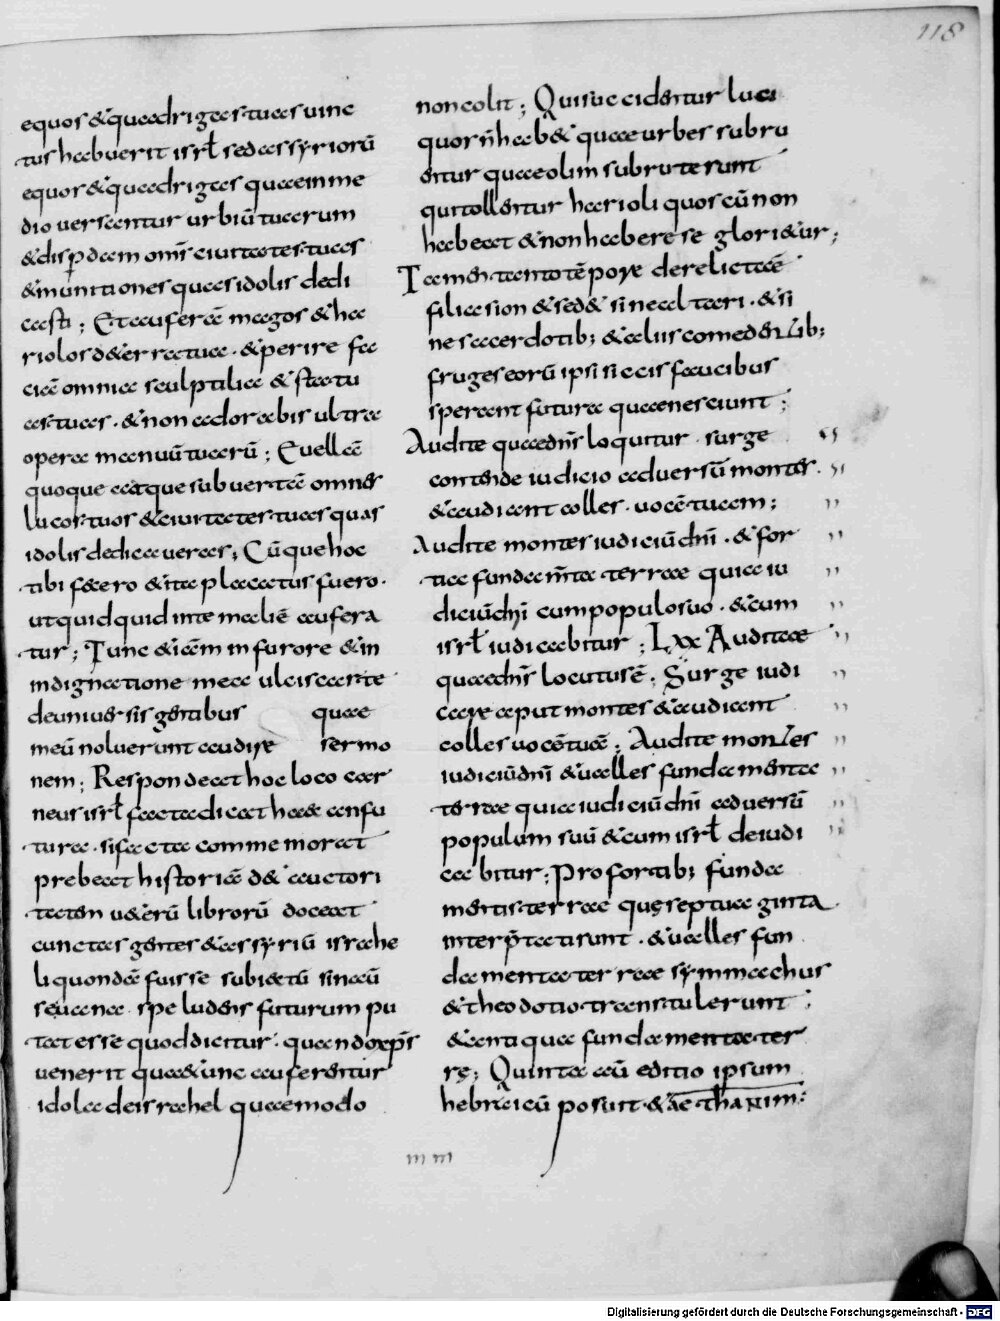 118
equos & quadrigas tuas uinc
tus habuerit isrł sed assyriorū
equos & quadrigas quae in me
dio uersantur urbiū tuarum
& disꝑdam om̄s ciuitates tuas
& munitiones quas idolis dedi
casti; Et auferā magos & ha
riolos de terra tua · & perire fa
ciā omnia sculptilia & statu
as tuas · & non adorabis ultra
opera manuū tuarū; Euellā
quoque atque subuertā omnes
lucos tuos & ciuitates tuas quas
idolis dedicaueras; Cūque hoc
tibi fecero & ita placatus fuero ·
ut quidquid in te malū est aufera
tur; Tunc etiā in furore & in
indignatione mea ulciscar te
de uniuersis gentibus quae
meū noluerunt audire sermo
nem; Respondeat hoc loco car
neus isrł facta dicat haec an fu
tura · si facta commemorat
prebeat historiā de auctori
tate ueterū librorū doceat
cunctas gentes & assyriū israhe
li quondā fuisse subiectū sin aū
seuanea spe ludens futurum pu
tat esse quod dicitur · quando xp̄s
uenerit quae tunc auferentur
idola de israhel quae modo
non colit; Qui succidentur luci
quos n̄ hab& quae urbes subru
entur quae olim subrutae sunt
qui tollentur harioli quos cū non
habeat & non habere se glori&ur;
Tamen tanto tēpore derelictae
filiae sion & sed& sine altari · & si
ne sacerdotib; & aliis comedentib;
fruges eorū ipsi siccis faucibus
sperant futura quae nesciunt;
Audite quae dn̄s loquitur · surge
contende iudicio aduersū montes ·
& audiant colles · uocē tuam;
Audite montes iudiciū dn̄i · & for
tia fundam̄ta terrae quia iu
diciū dn̄i cum populo suo · & cum
isrł iudicabitur; Lxx Audite
quae dn̄s locutus ē; Surge iudi
care aput montes & audiant
colles uocē tuā; Audite montes
iudiciū dn̄i & ualles fundamenta
terrae quia iudiciū dn̄i aduersū
populum suū & cum isrł deiudi
cabitur; Pro fortib; funda
mentis terrae quę septuaginta
interp̄tati sunt · & ualles fun
damenta terrae symmachus
& theodotio transtulerunt;
& antiqua fundamenta ter
rę; Quinta aū editio ipsum
hebraicū posuit & aethanim;
m m
Digitalisierung gefördert durch die Deutsche Forschungsgemeinschaft - DFG